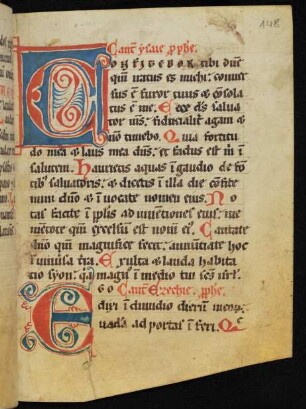 148
Cant ysaie pphe.
CONFITEBOR tibi dne
qm iratus es michi: conuer
sus ē furor tuus & cōsola
tus ē me. Ecce ds salua
tor ms: fiducialit agam &
nō timebo. Quia fortitu
do mea & laus mea dns: & factus est m i
salutem. Haurietis aquas i gaudio de fō
tib saluatoris: & dicetis i illa die cōfite
mini dno & iuocate nomen eius. No
tas facite i pplis adiuētiones eius: me
mētote qm excelsū est nom ei. Cantate
dno qm magnifice fecit: annūtiate hoc
i uniūsa tra. Exulta & lauda habita
tio syon: qa magn i medio tui scs isrl.
EGO Cant Ezechie pphe.
dixi i dimidio dierū meoꝝ:
uadā ad portas iferi. Qe